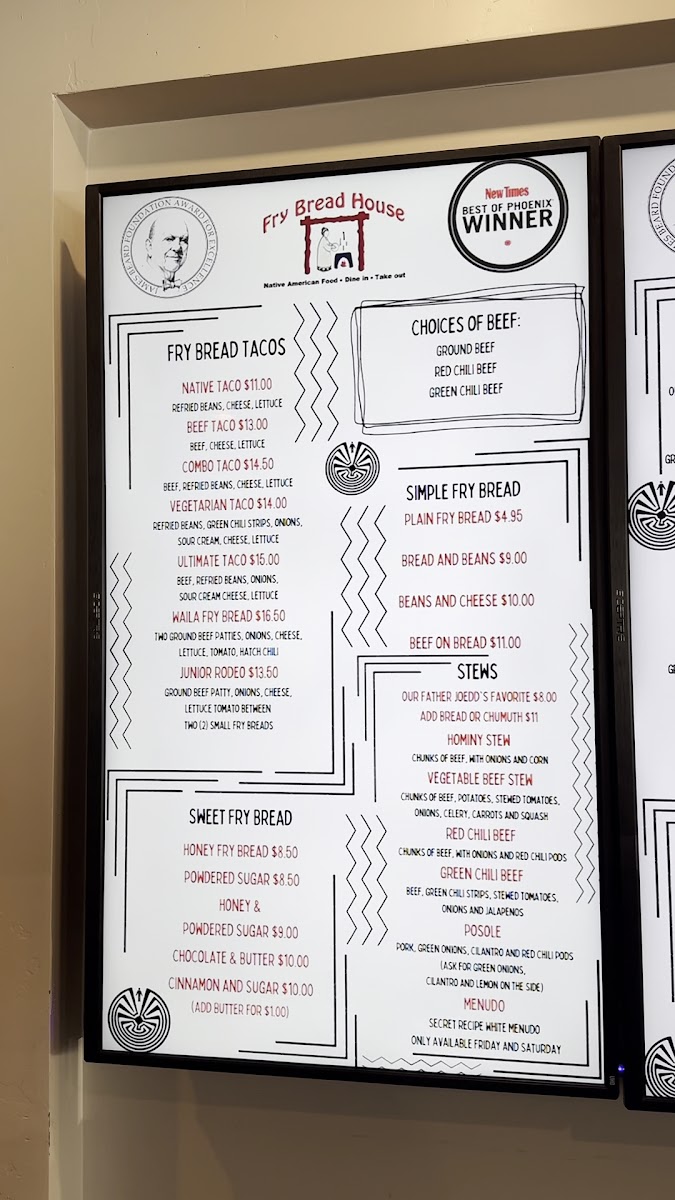 JAMES BEARD FOUNDATION AWARD FOR EXCELLENCE
Fry Bread House
Native American Food • Dine in • Take out
New Times
BEST OF PHOENIX
WINNER
FRY BREAD TACOS
NATIVE TACO $11.00
REFRIED BEANS, CHEESE, LETTUCE
BEEF TACO $13.00
BEEF, CHEESE, LETTUCE
COMBO TACO $14.50
BEEF, REFRIED BEANS, CHEESE, LETTUCE
VEGETARIAN TACO $14.00
REFRIED BEANS, GREEN CHILI STRIPS, ONIONS,
SOUR CREAM, CHEESE, LETTUCE
ULTIMATE TACO $15.00
BEEF, REFRIED BEANS, ONIONS,
SOUR CREAM CHEESE, LETTUCE
WAILA FRY BREAD $16.50
TWO GROUND BEEF PATTIES, ONIONS, CHEESE,
LETTUCE, TOMATO, HATCH CHILI
JUNIOR RODEO $13.50
GROUND BEEF PATTY, ONIONS, CHEESE,
LETTUCE TOMATO BETWEEN
TWO (2) SMALL FRY BREADS
SWEET FRY BREAD
HONEY FRY BREAD $8.50
POWDERED SUGAR $8.50
HONEY &
POWDERED SUGAR $9.00
CHOCOLATE & BUTTER $10.00
CINNAMON AND SUGAR $10.00
(ADD BUTTER FOR $1.00)
CHOICES OF BEEF:
GROUND BEEF
RED CHILI BEEF
GREEN CHILI BEEF
SIMPLE FRY BREAD
PLAIN FRY BREAD $4.95
BREAD AND BEANS $9.00
BEANS AND CHEESE $10.00
BEEF ON BREAD $11.00
STEWS
OUR FATHER JOEDD'S FAVORITE $8.00
ADD BREAD OR CHUMUTH $11
HOMINY STEW
CHUNKS OF BEEF, WITH ONIONS AND CORN
VEGETABLE BEEF STEW
CHUNKS OF BEEF, POTATOES, STEWED TOMATOES,
ONIONS, CELERY, CARROTS AND SQUASH
RED CHILI BEEF
CHUNKS OF BEEF, WITH ONIONS AND RED CHILI PODS
GREEN CHILI BEEF
BEEF, GREEN CHILI STRIPS, STEWED TOMATOES,
ONIONS AND JALAPENOS
POSOLE
PORK, GREEN ONIONS, CILANTRO AND RED CHILI PODS
(ASK FOR GREEN ONIONS,
CILANTRO AND LEMON ON THE SIDE)
MENUDO
SECRET RECIPE WHITE MENUDO
ONLY AVAILABLE FRIDAY AND SATURDAY